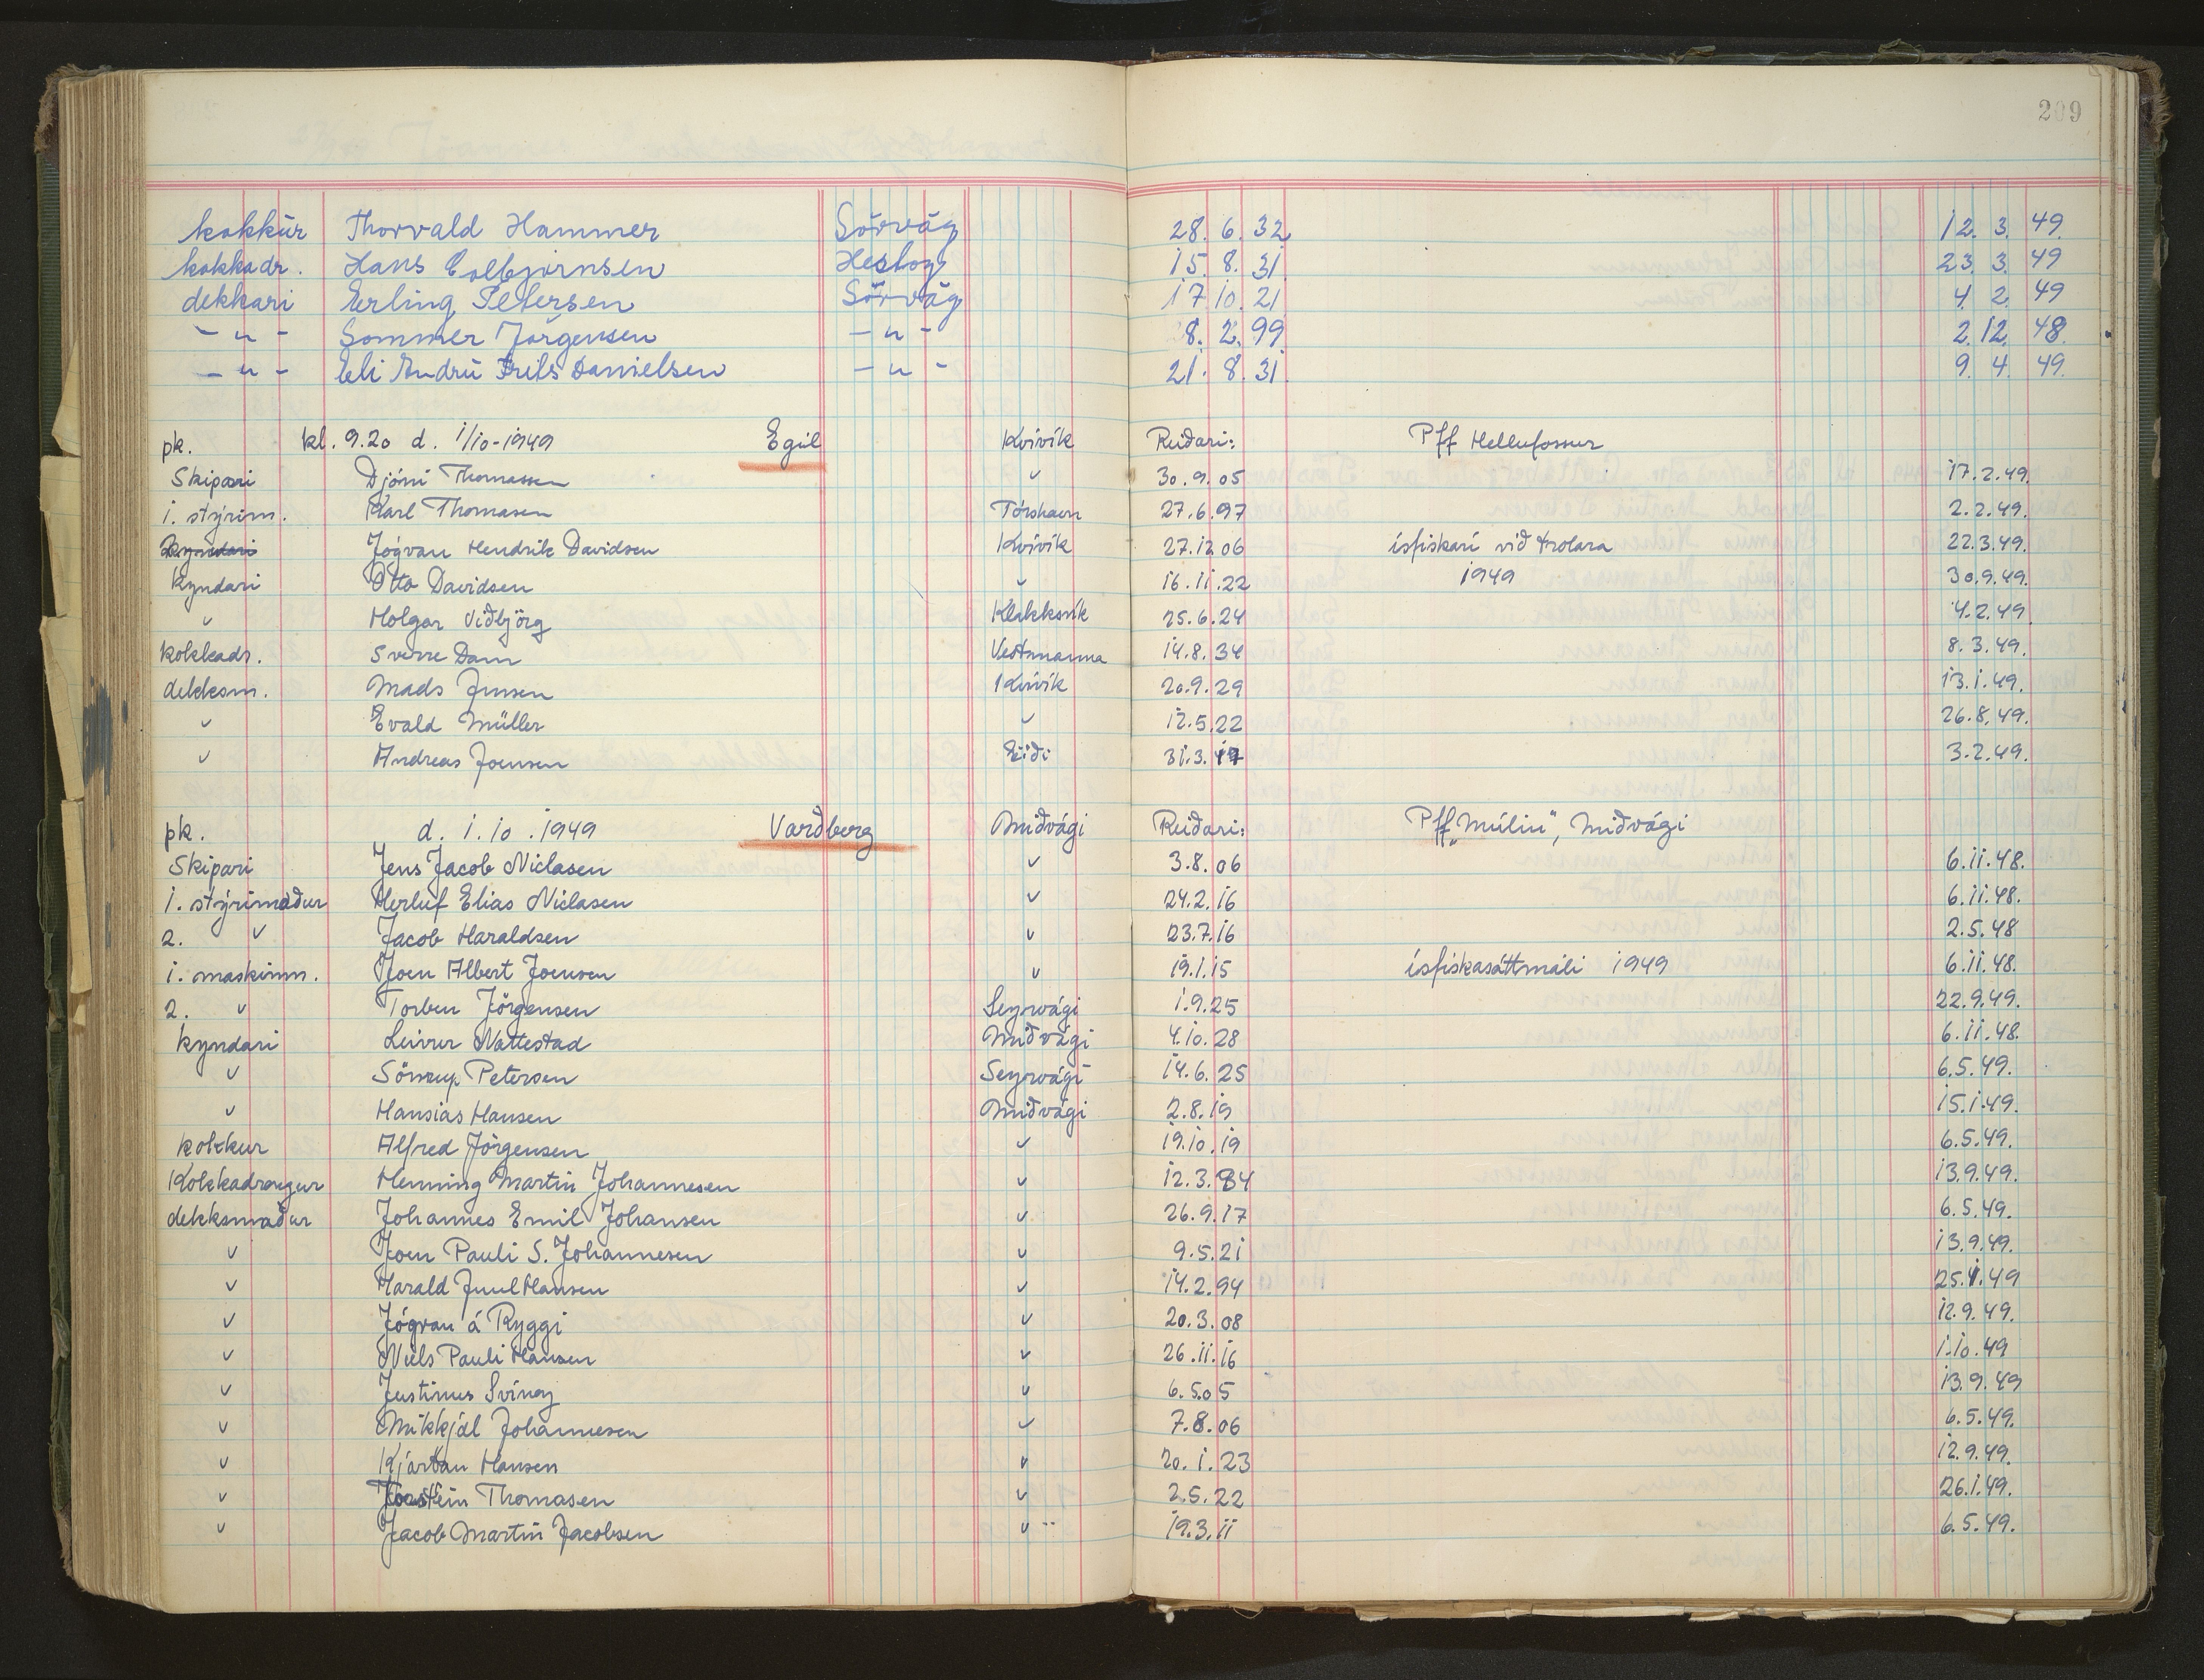 209
kokkur Thorvald Hammer Sörvág 28. 6. 32 12. 3. 49
kokkadr. Hans Eslbjørnsen Hestoy 15. 8. 31 23. 3. 49
dekkari Erling Petersen Sörvág 17 10. 21 4. 2. 49
- " - Sommer Jörgensen - " - 8. 2. 99 2. 12. 48
- " - Eli Andru Frits Danielsen - " - 21. 8. 31 9. 4. 49
pk. kl. 9.20 d. 1/10-1949 Egil Kvívík Reiðari: Pff Hellufossur
Skipari Djóni Thomassen " 30.9.05 17.2.49.
1. stýrim. Karl Thomasen Tórshavn 27.6.97 2.2.49.
kyndari Jógvan Hendrik Davidsen Kvívík 27.12 06 ísfiskarí við trolara 22.3.49.
kyndari Otto Davidsen " 16.11.22 1949 30.9.49.
" Holgar Viðbjörg Klakksvík 25.6.24 4.2.49.
kokkadr. Sverre Dam Vestmanna 14.8.34 8.3.49.
dekksm. Mads Jensen Kvívík 20.9.29 13.1.49.
" Evald Müller " 12.5.22 26.8.49.
" Andreas Joensen Eiði 31.3.17 3.2.49.
pk. d. 1.10.1949 Varðberg Miðvági Reiðari: Pff „Múlin", Miðvági
Skipari Jens Jacob Niclasen " 3.8.06 6.11.48.
1. stýrimaður Herluf Elias Niclasen " 24.2.16 6.11.48.
2. " Jacob Haraldsen " 23.7.16 2.5.48
1. maskinm. Joen Albert Joensen " 19.1.15 ísfiskasáttmáli 1949 6.11.48.
2. " Torben Jörgensen Seyrvági 1.9.25 22.9.49.
kyndari Leivur Nattestad Miðvági 4.10.28 6.11.48.
" Sörrup Petersen Seyrvági 14.6.25 6.5.49.
" Hansias Hansen Miðvági 2.8.19 15.1.49.
kokkur Alfred Jörgensen " 19.10.19 6.5.49.
Kokkadrongur Henning Martin Johannesen " 12.3.34 13.9.49.
dekksmaður Johannes Emil Johansen " 26.9.17 6.5.49.
" Joen Pauli S. Johannesen " 9.5.21 13.9.49.
" Harald Juul Hansen " 14.2.94 25.1.49
" Jógvan á Ryggi " 20.3.08 12.9.49.
" Niels Pauli Hansen " 26.11.16 1.10.49
" Justinus Svínoy " 6.5.05 13.9.49
" Mikkjal Johannesen " 7.8.06 6.5.49.
" Kjartan Hansen " 20.1.23 12.9.49.
" Thomasen " 2.5.22 26.1.49.
" Jacob Martin Jacobsen " 19.3.11 6.5.49.